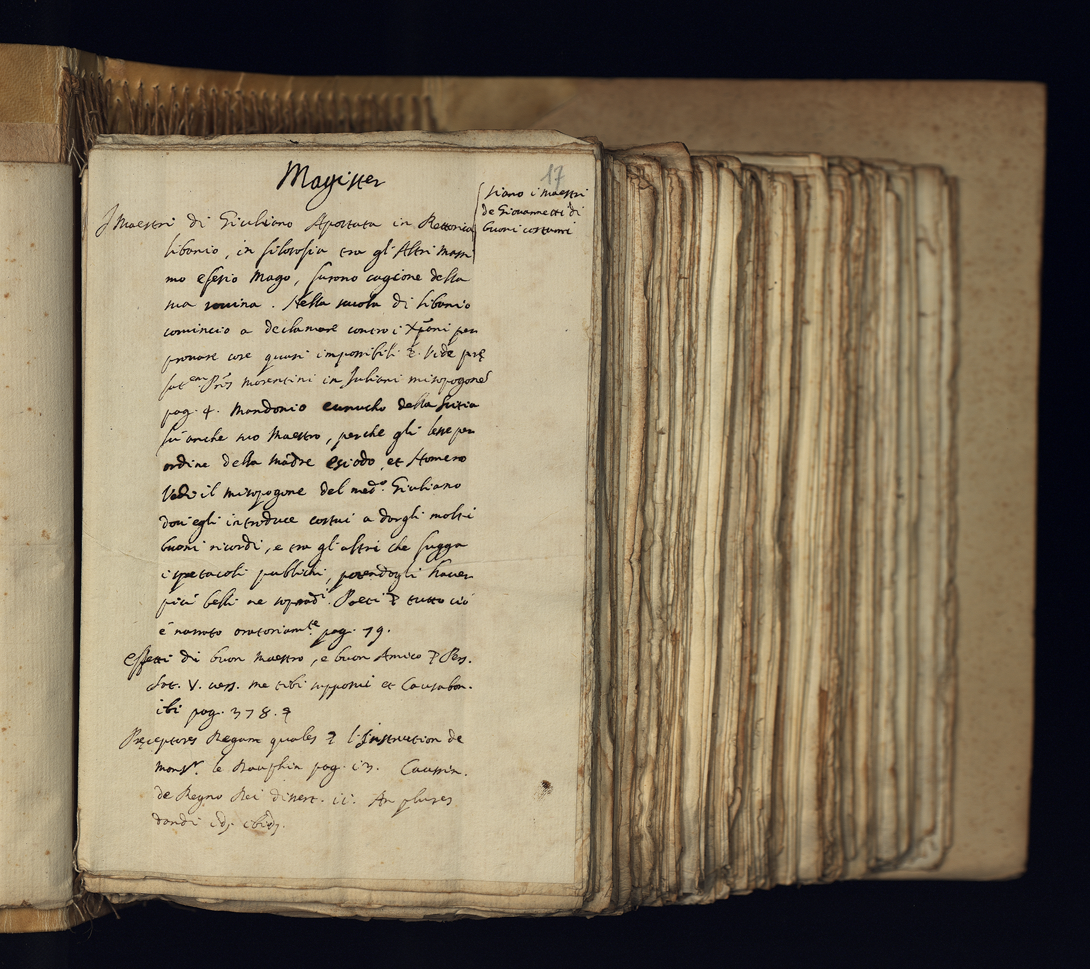 Magister
17
siano i maestri
de Giovanetti di
buoni costumi
I Maestri di Giuliano Apostata in Rettorica
libanio, in filosofia tra gli Altri Massi
mo efesio Mago, furono cagione della
sua rouina. Nella scuola di libanio
comincio a declamare contro i Xpani per
prouare cose quasi impossibili &. Vide præ
fat.em Martini in Juliani misopogone
pag. 4. Mandonio eunucho della Scitia
fu anche suo Maestro, perche gli lesse per
ordine della madre esiodo, et Homero
Vedi il misopogone del med.o Giuliano
dou'egli introduce costui a dargli molti
buoni ricordi, e tra gli altri che fugga
i spetacoli publichi, potendogli hauer
piu belli ne sopradi. Poeti & tutto ciò
è narrato oratoriam.te pag. 79.
effetti di buon Maestro, e buon Amico & Pers.
Sat. V. uers. me tibi supposui et Causabon.
ibi pag. 378. &
Præceptores Regum quales & l'Instruction de
Mons.r le Dauphin pag. 13. Caussin.
de Regno Dei dissert. ii. An plures
dandi id. ibid.